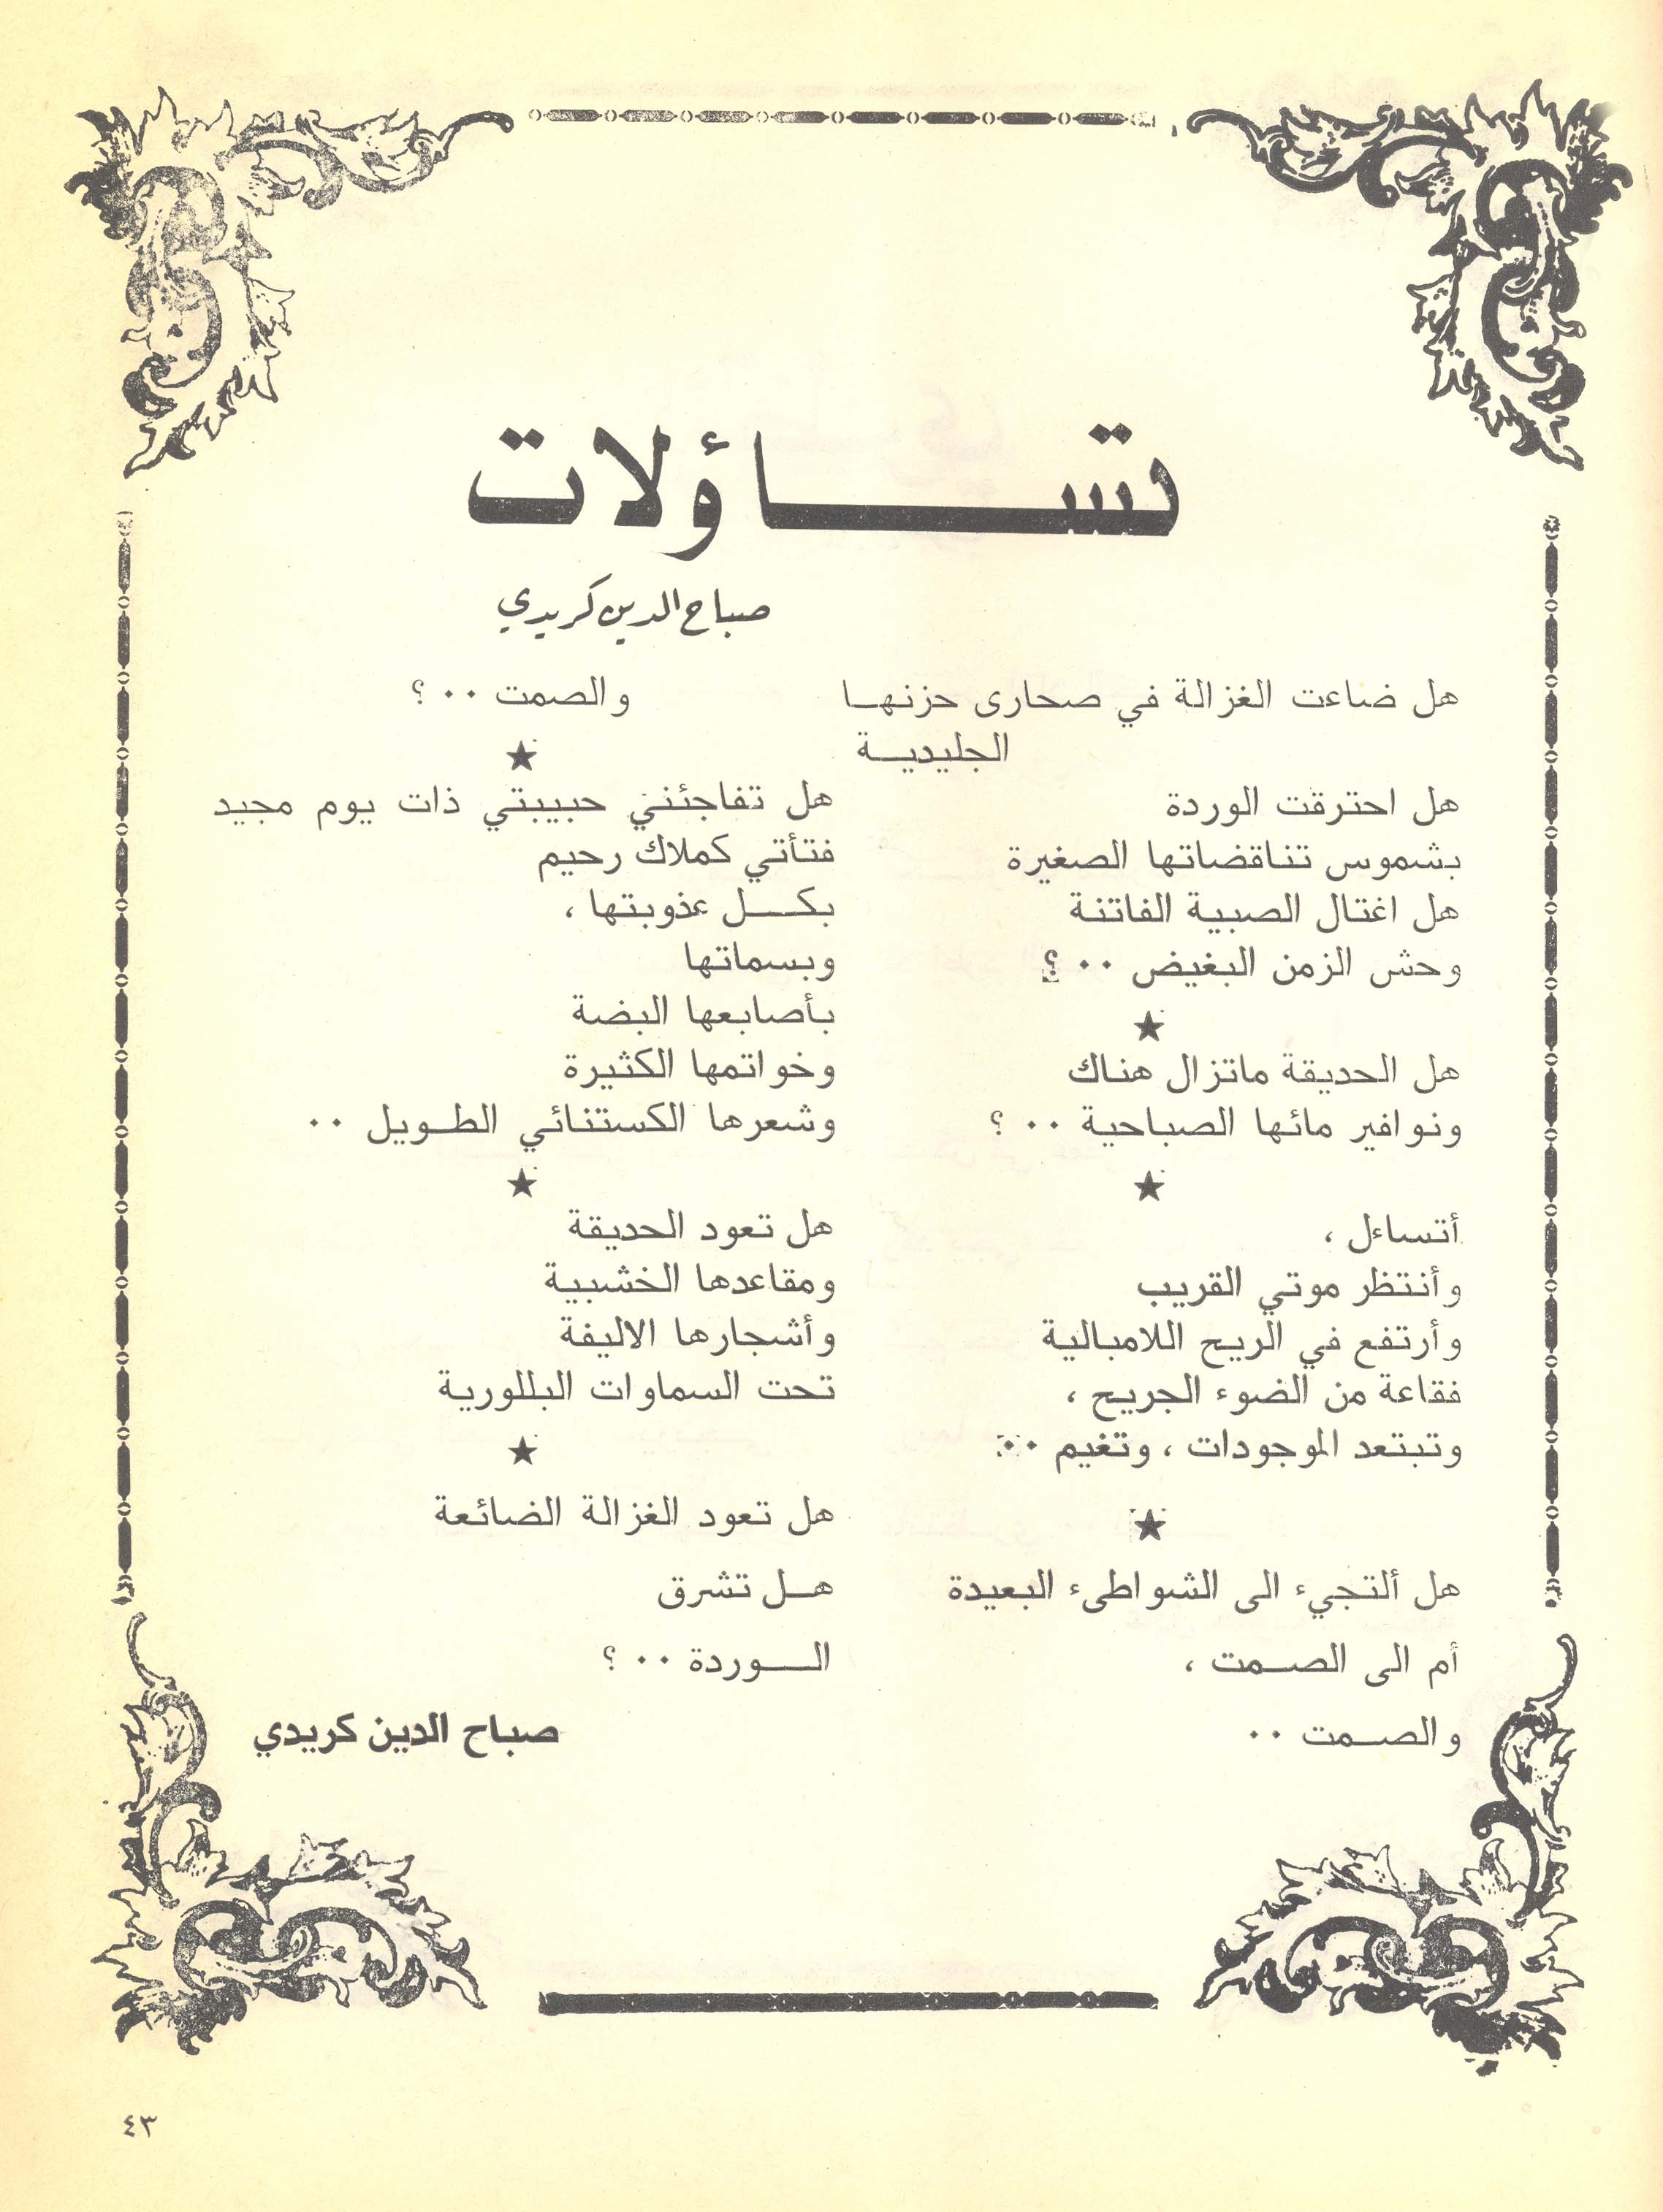 تساؤلات
صباح الدين كريدي
هل ضاعت الغزالة في صحارى حزنها
الجليدية
هل احترقت الوردة
بشموس تناقضاتها الصغيرة
هل اغتال الصبية الفاتنة
وحش الزمن البغيض ٠٠ ؟
★
هل الحديقة ماتزال هناك
ونوافير مائها الصباحية ٠٠ ؟
★
أتساءل ،
وأنتظر موتي القريب
وأرتفع في الريح اللامبالية
فقاعة من الضوء الجريح ،
وتبتعد الموجودات ، وتغيم ٠٠
★
هل ألتجيء الى الشواطىء البعيدة
أم الى الصمت ،
والصمت ٠٠
والصمت ٠٠ ؟
★
هل تفاجئني حبيبتي ذات يوم مجيد
فتأتي كملاك رحيم
بكل عذوبتها ،
وبسماتها
بأصابعها البضة
وخواتمها الكثيرة
وشعرها الكستنائي الطويل ٠٠
★
هل تعود الحديقة
ومقاعدها الخشبية
وأشجارها الاليفة
تحت السماوات البللورية
★
هل تعود الغزالة الضائعة
هل تشرق
الوردة ٠٠ ؟
صباح الدين كريدي
٤٣